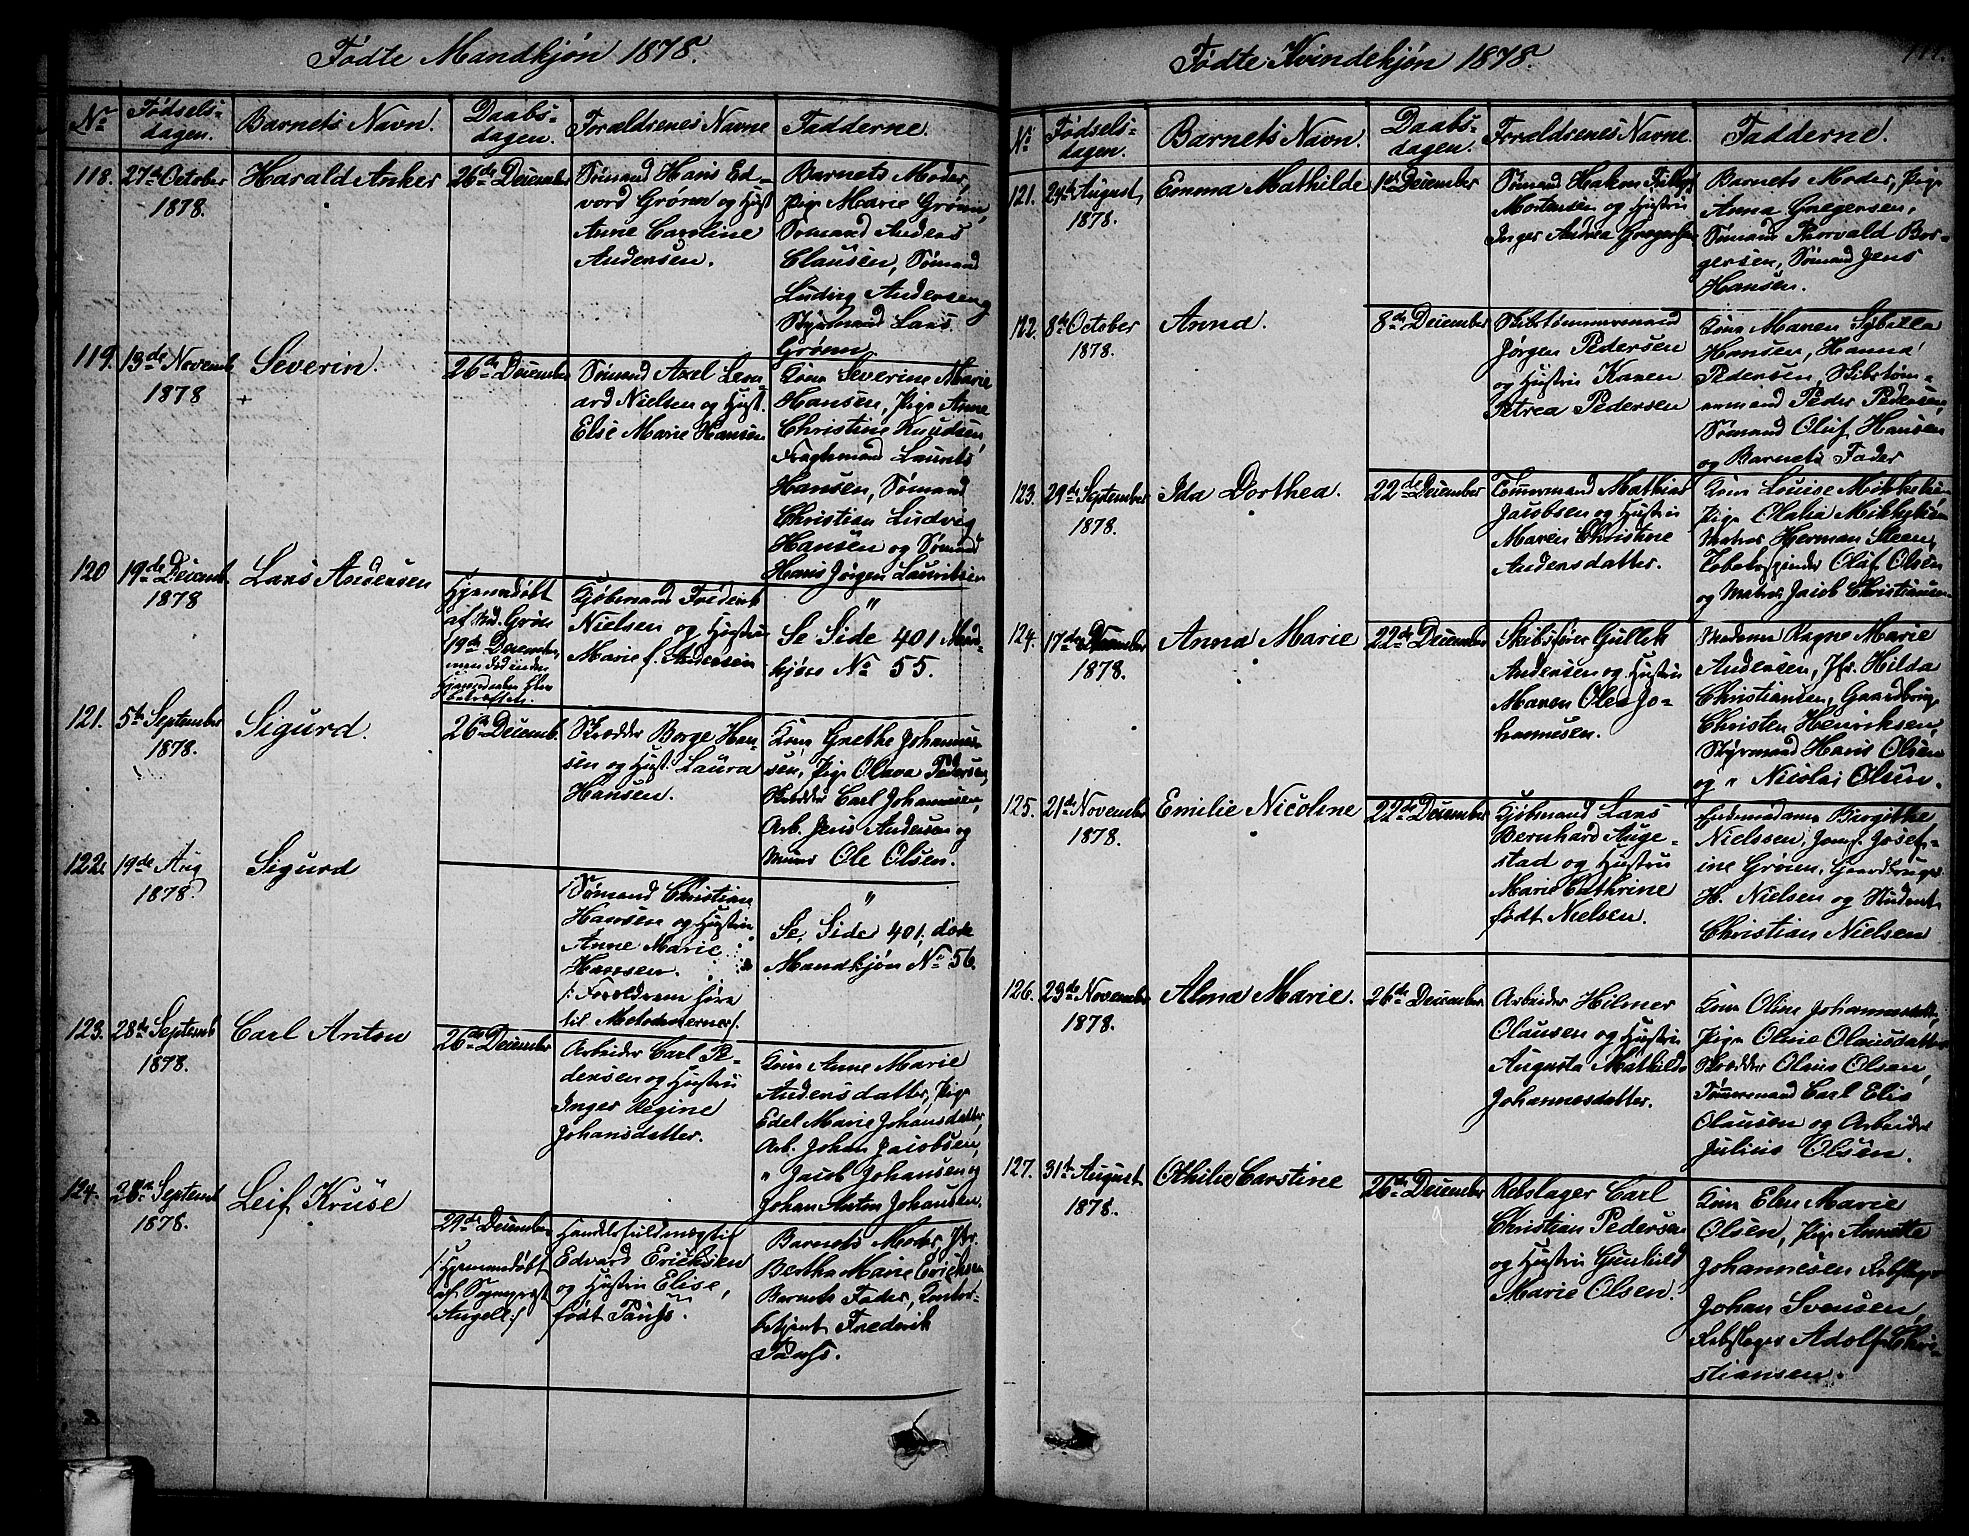 Fødte Mandkjøn 1878.
No Fødselsdagen. Barnets Navn. Daabsdagen. Forældrenes Navne Fadderne.
118. 27de October 1878. Harald Anker 26de December
Sømand Hans Ed-
vard Grønn og Hust
Anne Caroline
Andersen.
Barnets Moder,
Pige Marie Grønn,
Sømand Anders
Clausen, Sømand
Ludvig Andersen og
Styrmand Lars
Grønn
119. 13de Novemb 1878 Severin. 26de December
Sømand Axel Leon-
ard Nielsen og Hust.
Else Marie Hansen
Kone Severine Marie
Hansen, Pige Anne
Christine Knudsen
Fragtmand Laurits
Hansen, Sømand
Christian Ludvig
Hansen og Sømand
Hans Jørgen Lauritsen
120 19de Decemb. 1878 Lars Andersen
Hjemmedøbt
af
19de December,
Kjøbmand Frederik
Nielsen og Hustru
Marie f. Andersen
"
Se Side 401 Mand-
kjøn No 55.
121. 5te September 1878. Sigurd. 26de Decemb.
Skrædder Borge Han-
sen og Hust. Laura
Hansen.
Kone Grethe Johannes-
sen, Pige Olava Pedersen,
Skrædder Carl Johannesen,
Arb. Jens Andersen og
Murer Ole Olsen.
122. 19de Aug 1878. Sigurd
Sømand Christian
Hansen og Hustru
Anne Marie
Hansen.
/: Forældrene høre
til Metodisterne/.
"
Se, Side 401, døde
Mandkjøn No 56.
123. 28de Septemb 1878. Carl Anton 26de December
Arbeider Carl Pe-
dersen og Hustru
Inger Regine
Johansdatter.
Kone Anne Marie
Andersdatter, Pige
Edel Marie Johansdatter,
Arb. Johan Jacobsen,
" Jacob Johansen og
Johan Anton Johansen.
124. 28de Septemb 1878. Leif Kruse 29de December
/: Hjemmedøbt
af Sogneprest
Angell:/
Handelsfuldmægtig
Edvard Ericksen
og Hustru Elise,
født Pauss.
Barnets Moder, Jfr.
Bertha Marie Ericksen
Barnets Fader, Contor-
betjent Frederik
Pauss.
Fødte Kvindekjøn 1878.
No Fødselsdagen. Barnets Navn. Daabsdagen. Forældrenes Navne. Fadderne.
121. 29de August, 1878. Emma Mathilde 1ste December
Sømand Hakon
Mortensen og Hustru
Inger Andrea Gregersen
Barnets Moder, Pige
Anna Gregersen,
Sømand Thorvald Bor-
gersen, Sømand Jens
Hansen.
122. 8de October 1878. Anna. 8de December
Skibstømmermand
Jørgen Pedersen
og Hustru Karen
Petrea Pedersen
Kone Maren Sybilla
Hansen, Hanna
Pedersen, Skibstøm-
mermand Peder Pedersen,
Sømand Oluf Hansen
og Barnets Fader
123. 29de September 1878. Ida Dorthea. 22de December
Tømmermand Mathias
Jacobsen og Hustru
Maren Christine
Andersdatter.
Kone Louise Mikkelsen
Pige Olalia Mikkelsen
Matros Herman Steen,
Tobakspinder Oluf Olsen
og Matros Jacob Christiansen
124. 17de 1878. Anna Marie 22de December
Skibsfører Gullik
Andersen og Hustru
Maren Olea Jo-
hannesen.
Madame Ragne Marie
Andersen, Jfr. Hilda
Christiansen, Gaardbrug.
Christen Henriksen,
Styrmand Hans Olsen
og " Nicolai Olsen.
125. 21de November 1878. Emilie Nicoline 22de December
Kjøbmand Lars
Bernhard Auge-
stad og Hustru
Marie Cathrine
født Nielsen.
Enkemadame Birgithe
Nielssen, Jomf. Josef-
ine Grøien, Gaardbruger
H. Nielsen og Student
Christian Nielsen
126. 23de November 1878. Alma Marie. 26de December
Arbeider Hilmer
Olausen og Hustru
Augusta Mathilde
Johannesdatter.
Kone Oline Johannesdatt.,
Pige Oline Olausdatter
Skrædder Olaus Olsen,
Tømmermand Carl Elis
Olausen og Arbeider
Julius Olsen.
127. 31te August 1878. Othilie Carstine 26de December
Rebslager Carl
Christian Pedersen
og Hustru Gunhild
Marie Olsen.
Kone Elen Marie
Olsen, Pige Annette
Johannesen Rebslager
Johan Svensen,
Rebslager Adolf Chri-
stiansen.